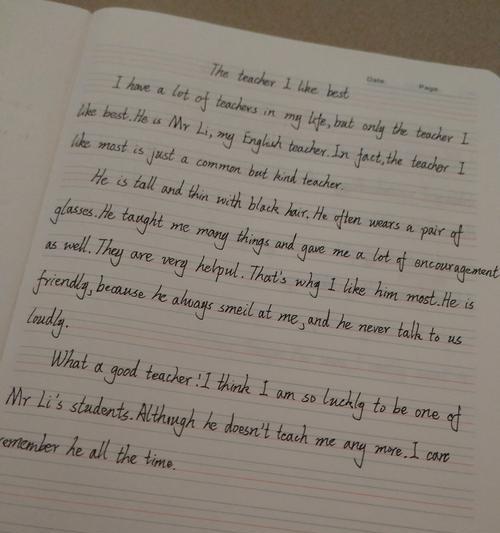 Date.
Page.
The teacher I like best
I have a lot of teachers in my life, but only the teacher I
like best. He is Mr Li, my English teacher. In fact, the teacher I
like most is just a common but kind teacher.
He is tall and thin with black hair. He often wears a pair of
glasses. He taught me many things and gave me a lot of encouragement
as well. They are very helpul. That's why I like him most. He is
friendly, because he always smeil at me, and he never talk to us
loudly.
What a good teacher! I think I am so luckly to be one of
Mr Li's students. Although he doesn't teach me any more. I can
remember he all the time.